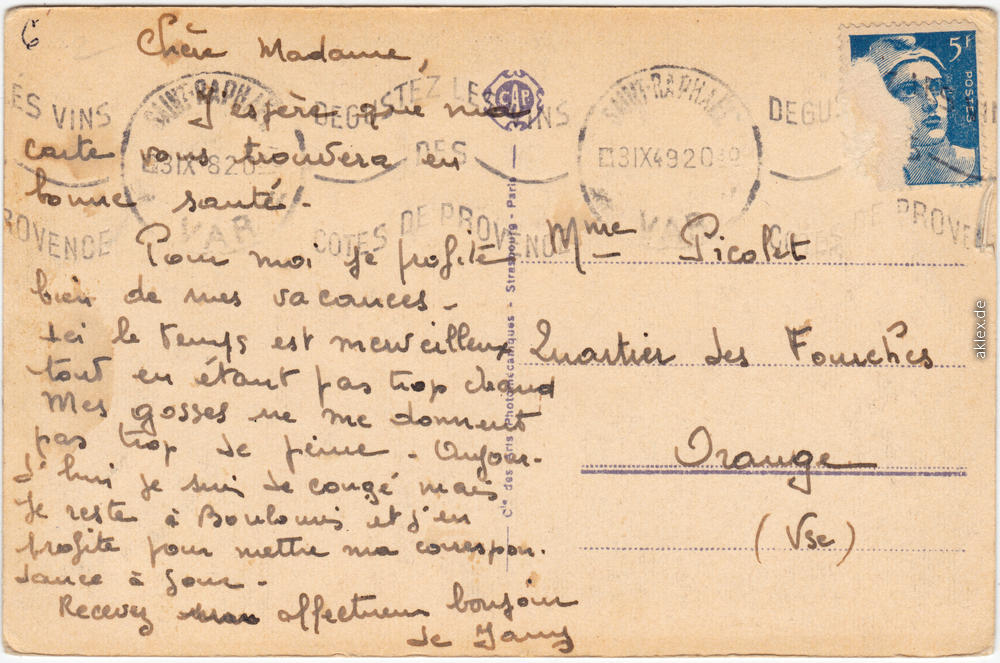 6
Chère Madame,
J'espère que ma
carte vous trouvera en
bonne santé.
Pour moi je profite
bien de mes vacances.
Ici le temps est merveilleux
tout en étant pas trop chaud
Mes gosses ne me donnent
pas trop de peine. Aujour-
d'hui je suis de congé mais
je reste à Boulouris et j'en
profite pour mettre ma correspon-
dance à jour.
Recevez mon affectueux bonjour
de
Mme Picolet
Quartier des Fourches
Orange
(Vse)
5F
POSTES
SAINT-RAPHAEL
VAR
DEGUSTEZ LES VINS
DES
COTES DE PROVENCE
SAINT-RAPHAEL
13 IX 49 20
VAR
LES VINS
PROVENCE
DEGUS
COTES DE PROVEN
CAP
Cie des Arts Photomécaniques - Strasbourg - Paris
aklex.de